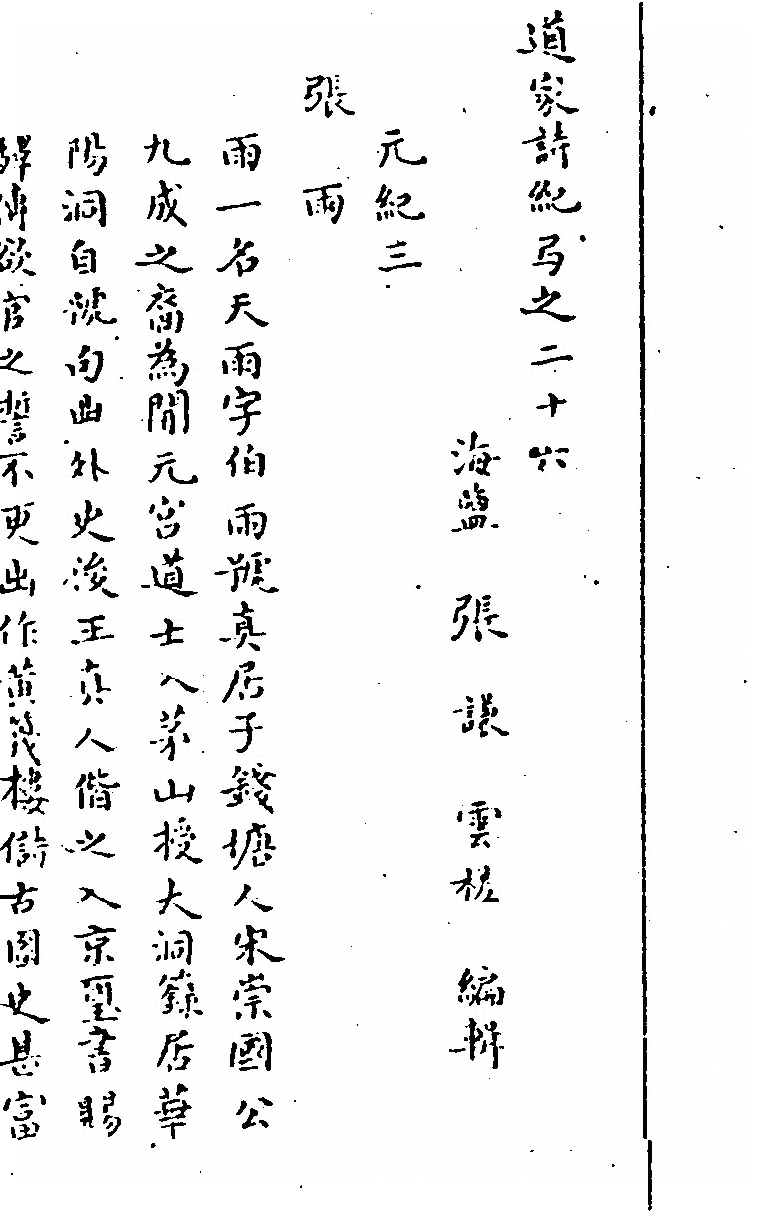 道家詩紀弓之二十六
海鹽 張謙 雲槎 編輯
元紀三
張雨
雨一名天雨字伯雨號真居子錢塘人宋崇國公
九成之裔為開元宮道士入茅山授大洞籙居華
陽洞自號句曲外史後王真人偕之入京璽書賜
驛傳欲官之誓不更出作黃篾樓儲古圖史甚富